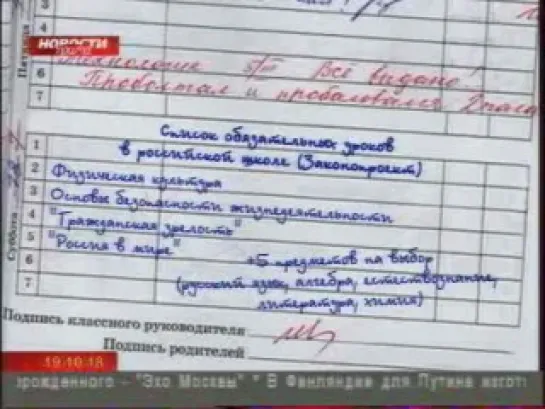 Пятница
3
4
НОВОСТИ
6
7
Всё видано!
Проболтал и пробаловался 2 часа
Суббота
1
Список обязательных уроков
в российской школе (Законопроект)
2
Физическая культура
3
Основы безопасности жизнедеятельности
4
"Гражданская зрелость"
5
"Россия в мире"
6
+5 предметов на выбор
7
(русский язык, алгебра, естествознание,
литература, химия)
Подпись классного руководителя
Подпись родителей
19:10:18
рожденного - "Эхо Москвы" * В Финляндии для Путина изгот